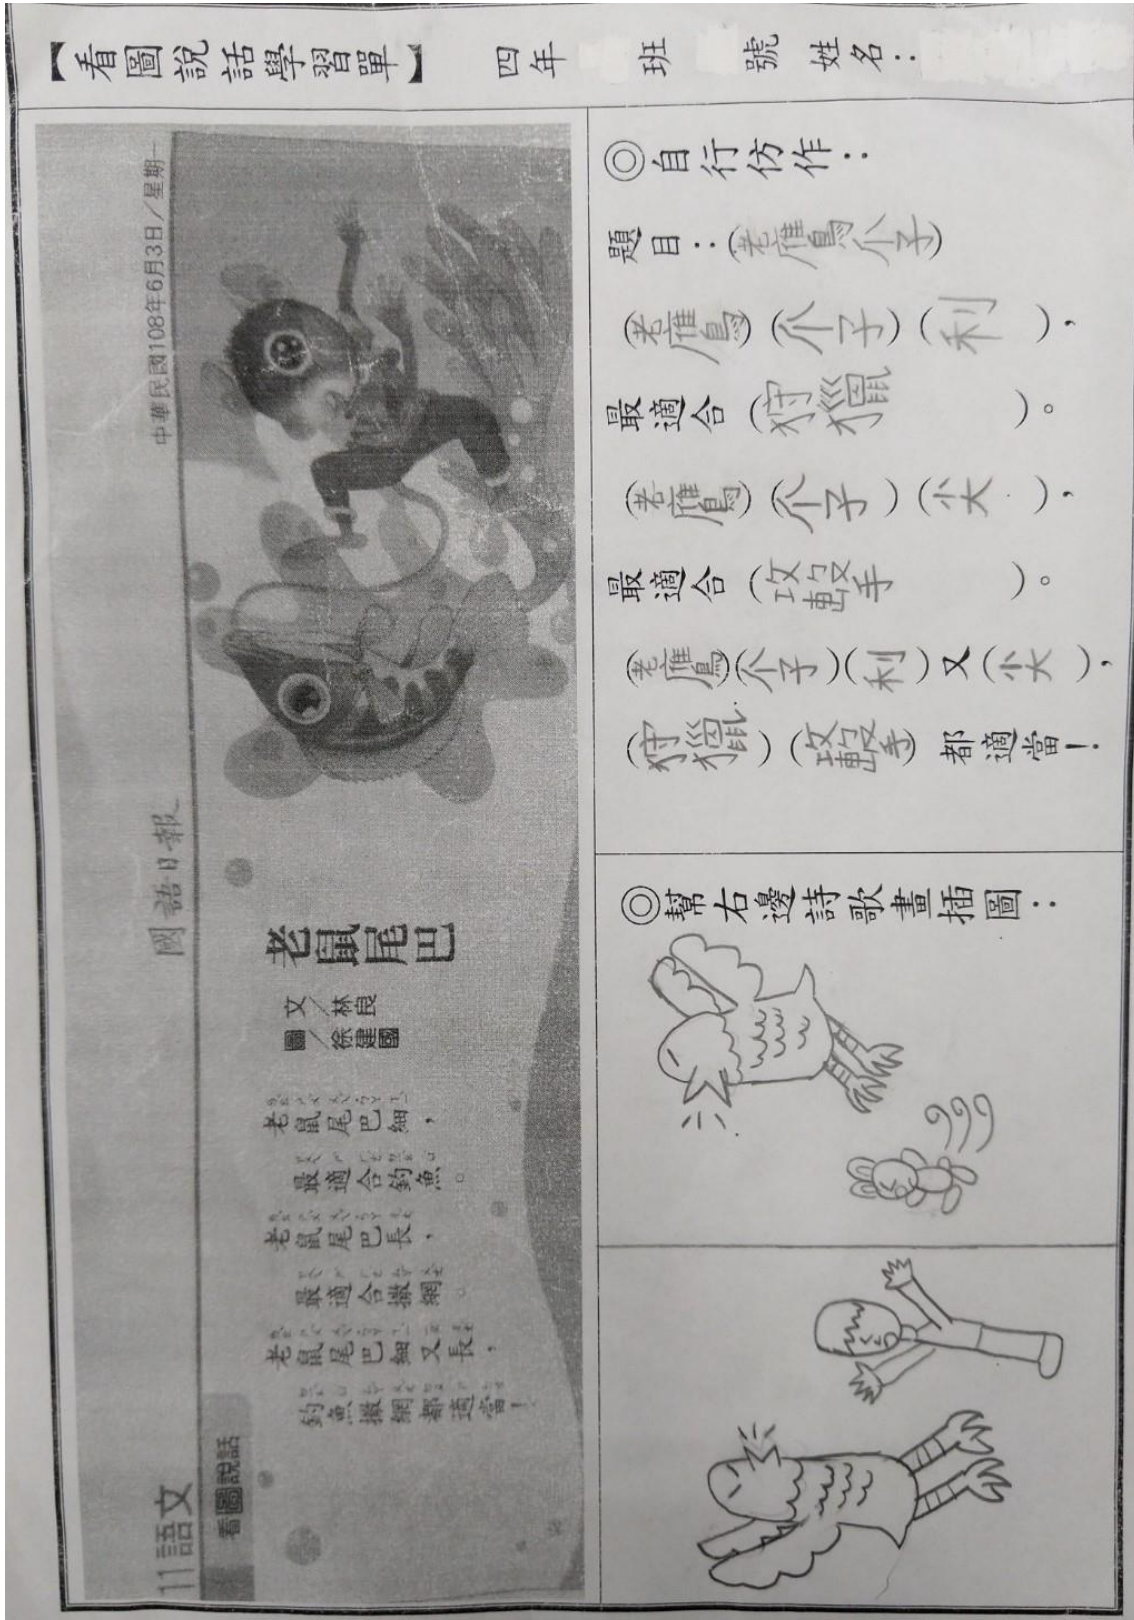 【看圖說話學習單】 四年 班 號 姓名：
中華民國108年6月3日／星期一
國語日報
11語文
看圖說話
老鼠尾巴
文／林良
圖／徐建國
老鼠尾巴細，
最適合釣魚。
老鼠尾巴長，
最適合撒網。
老鼠尾巴細又長，
釣魚撒網都適當！
◎自行仿作：
題目：（老鷹爪子）
（老鷹）（爪子）（利），
最適合（狩獵）。
（老鷹）（爪子）（尖），
最適合（攻擊）。
（老鷹）（爪子）（利）又（尖），
（狩獵）（攻擊）都適當！
◎幫右邊詩歌畫插圖：